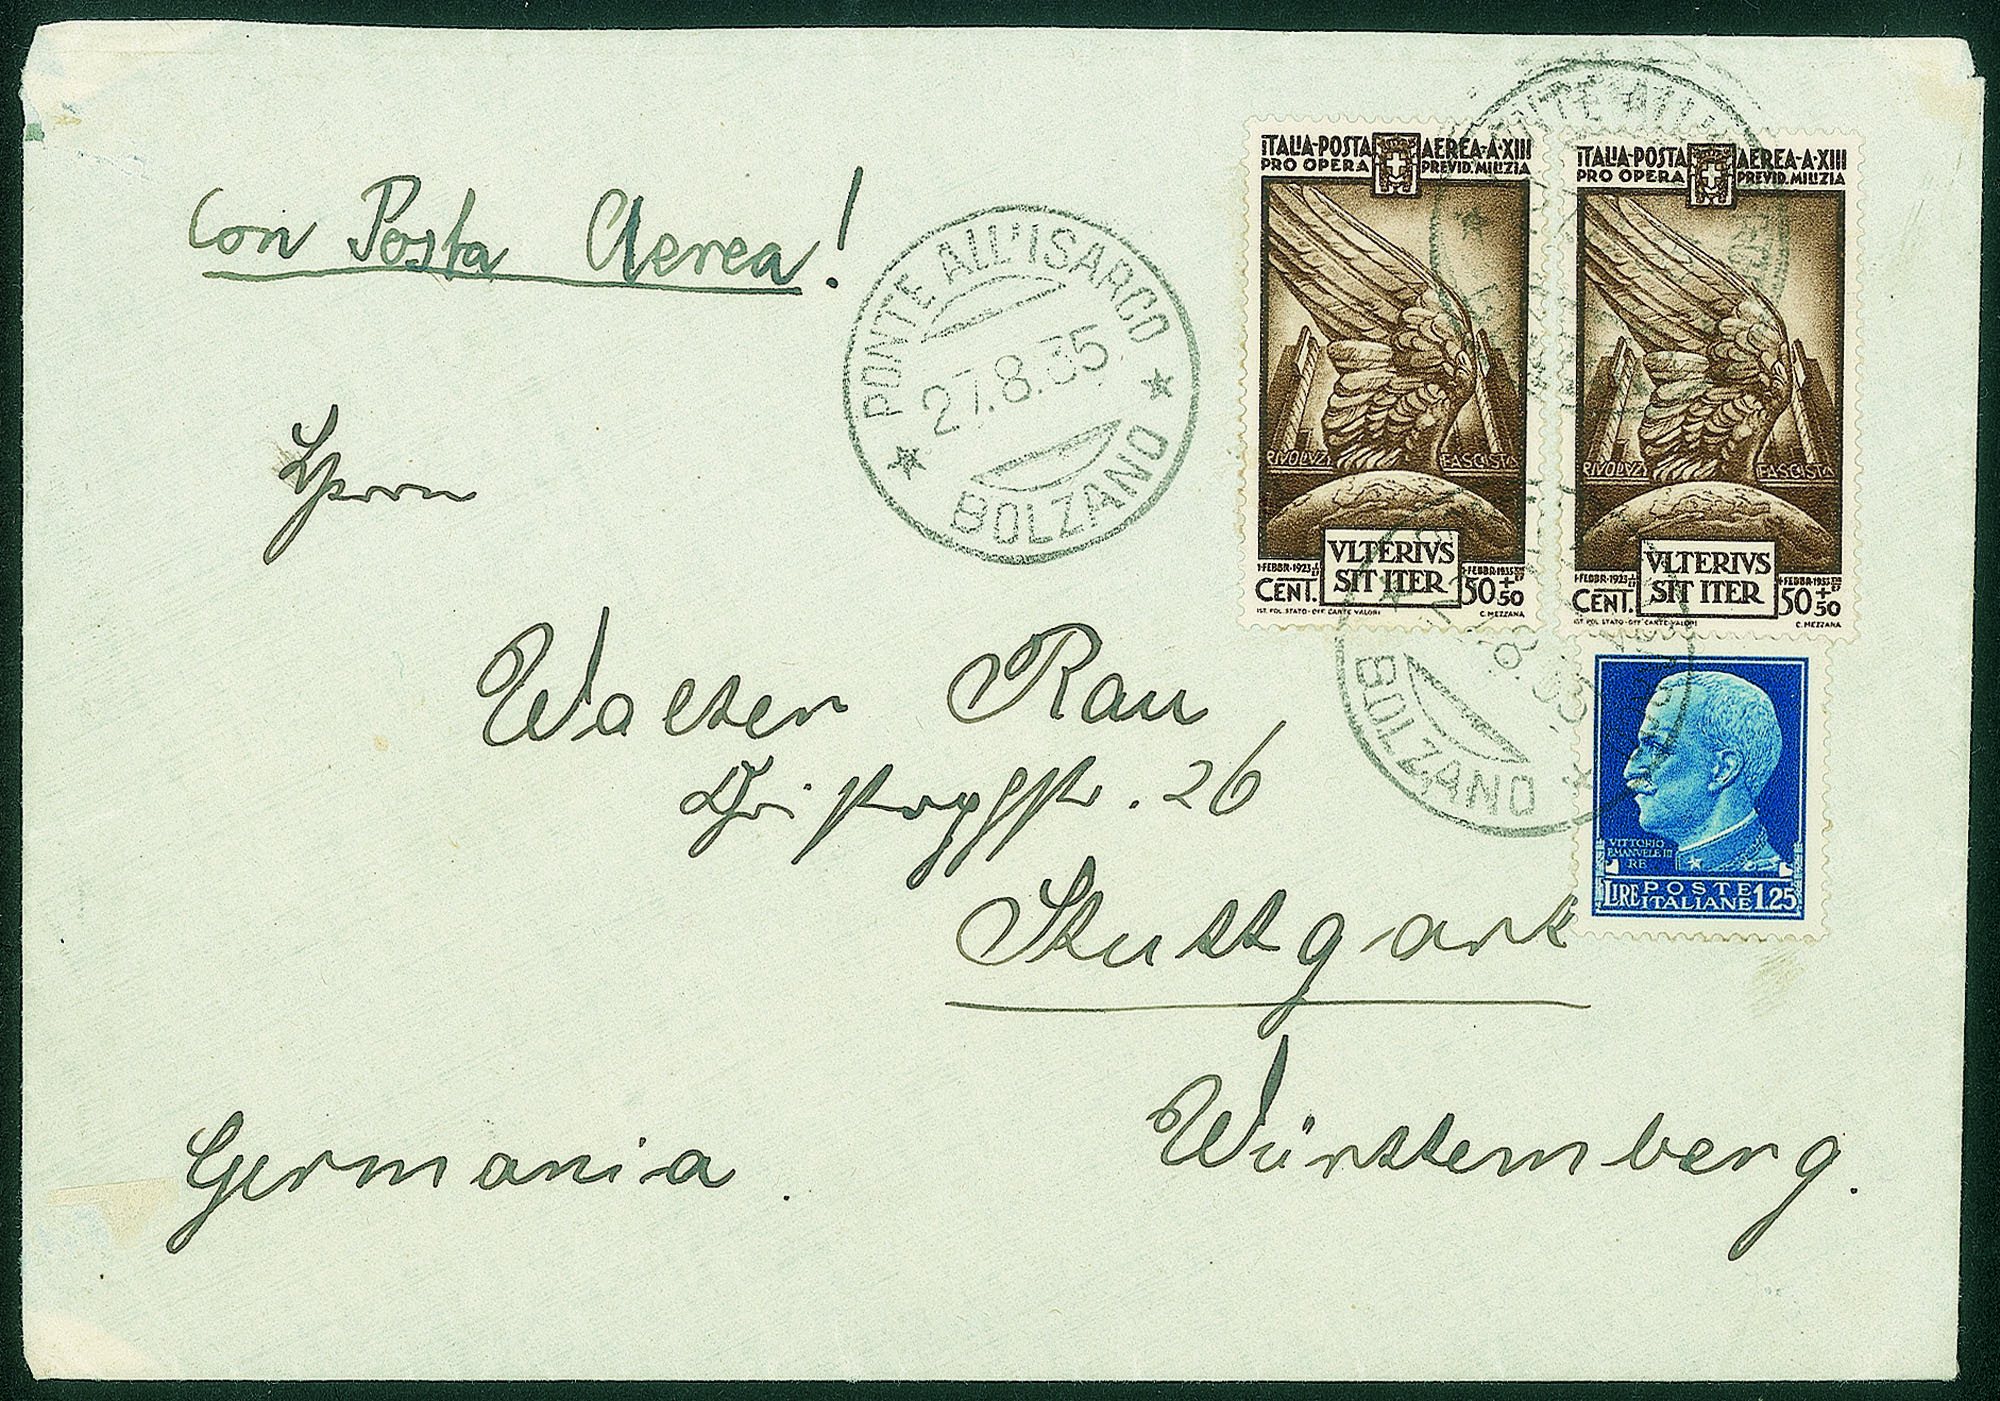 Con Posta Aerea!
PONTE ALL'ISARCO
27.8.35
BOLZANO
ITALIA·POSTA AEREA·A·XIII
PRO OPERA PREVID. MILIZIA
RIVOLVZ. FASCISTA
VLTERIVS
SIT ITER
1·FEBBR·1923 1·FEBBR·1935
CENT. 50+50
IST. POL. STATO·OFF. CARTE·VALORI C. MEZZANA
ITALIA·POSTA AEREA·A·XIII
PRO OPERA PREVID. MILIZIA
RIVOLVZ. FASCISTA
VLTERIVS
SIT ITER
1·FEBBR·1923 1·FEBBR·1935
CENT. 50+50
IST. POL. STATO·OFF. CARTE·VALORI C. MEZZANA
BOLZANO
VITTORIO
EMANVELE III
RE
LIRE POSTE ITALIANE 1,25
Herrn
Walter Rau
26
Stuttgart
Württemberg.
Germania.